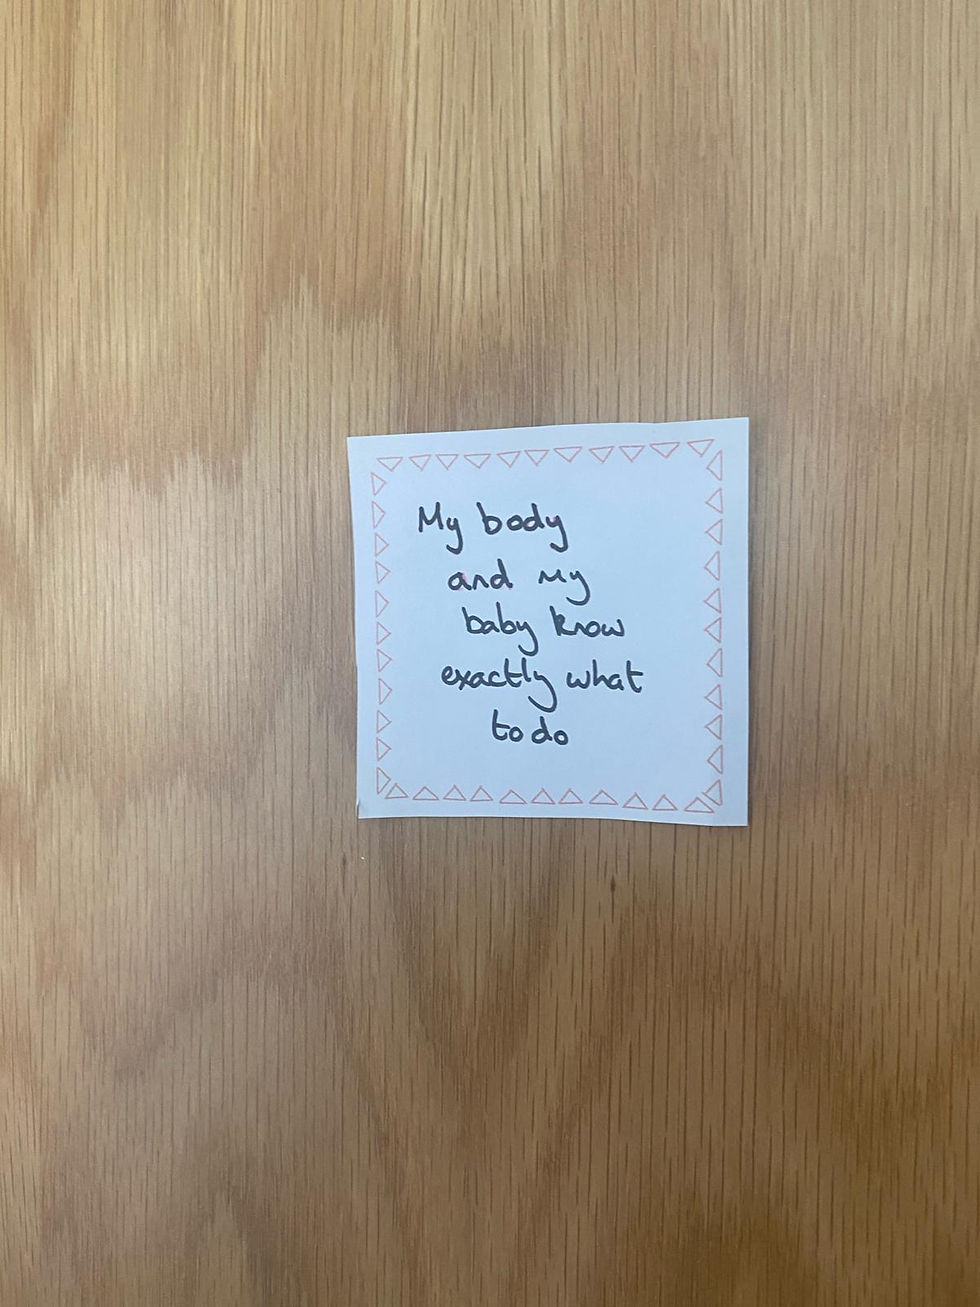 My body
and my
baby know
exactly what
to do